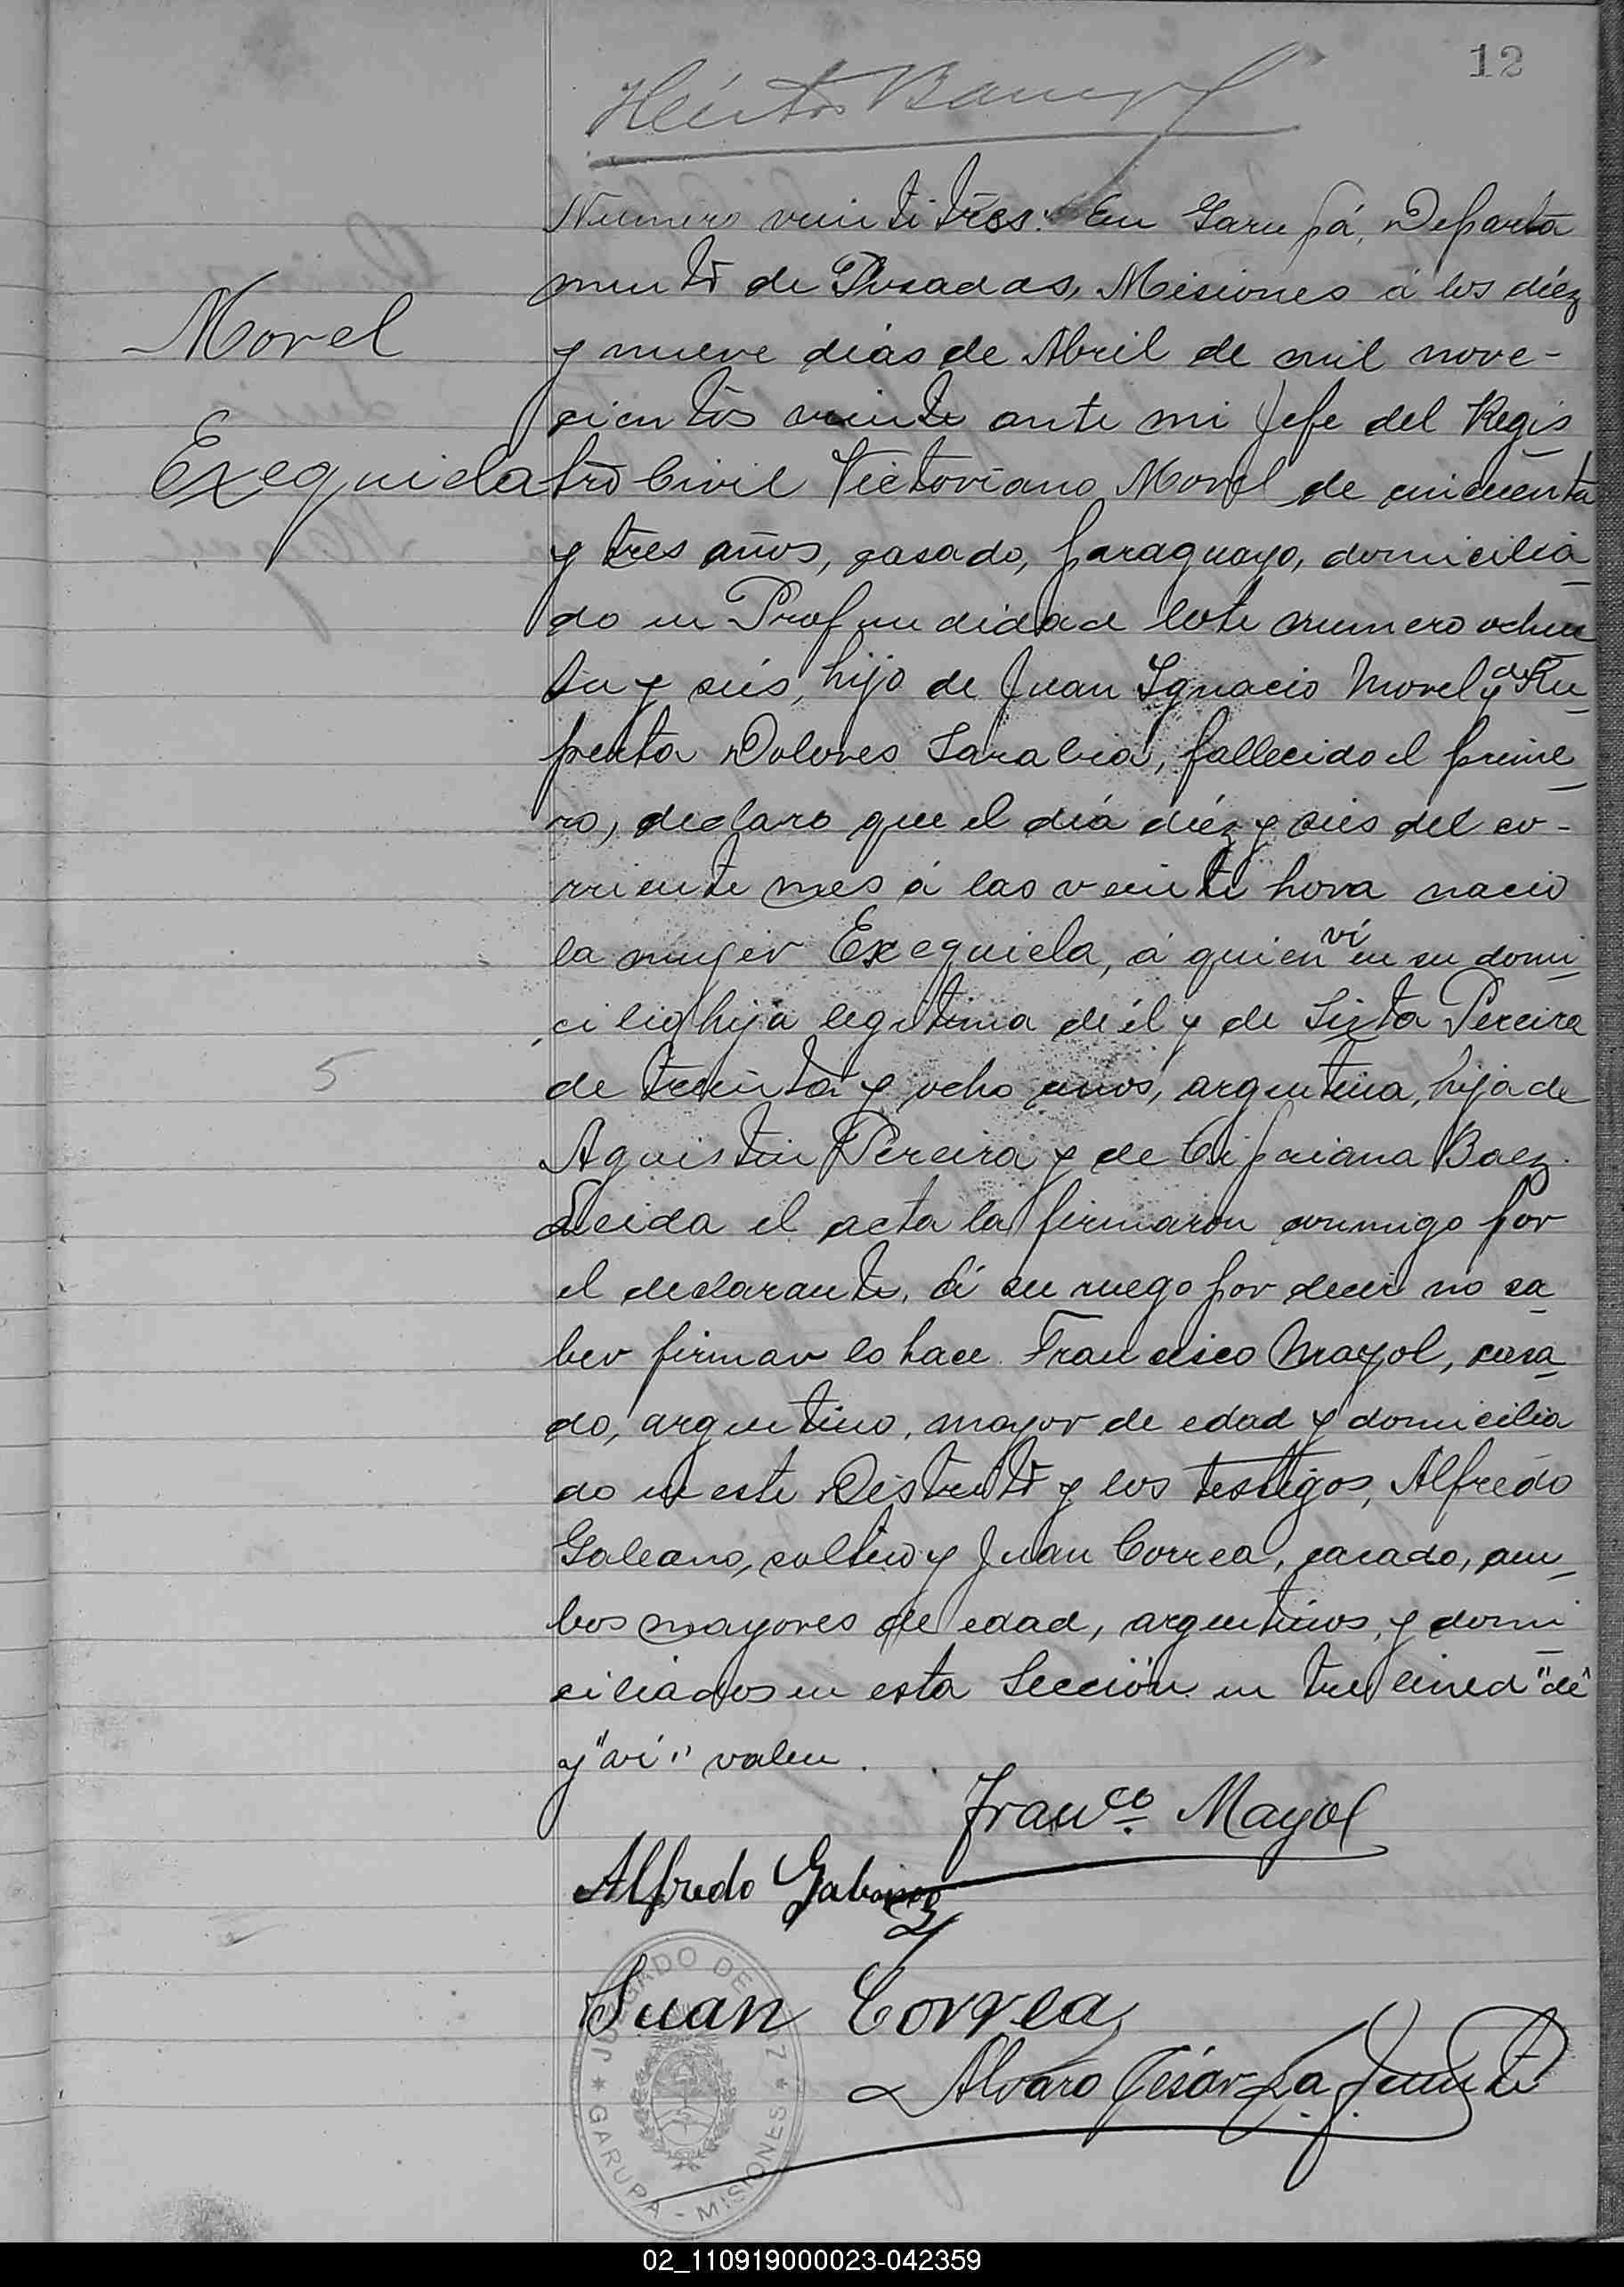 12
Numero veintitres. En Garupá, Departa
mento de Posadas, Misiones á los diéz
Morel
y nueve dias de Abril de mil nove-
cientos veinte ante mi Jefe del Regis
Exequiela
tro Civil Victoriano Morel de cincuenta
y tres años, casado, paraguayo, domicilia
do en Profundidad lote numero ochen
ta y seis, hijo de Juan Ignacio Morel y de Ru
perta Dolores Sarabia, fallecido el prime
ro, declaro que el dia diéz y seis del co-
rriente mes á las veinte hora nacio
la mujer Exequiela, á quien ví en su domi
cilio hija legitima de él y de Sixta Pereira
5
de treinta y ocho años, argentina, hija de
Aguistin Pereira y de Cipriana Baez.
Leida el acta la firmaron conmigo por
el declarante, á su ruego por decir no sa
ber firmar lo hace Francisco Mayol, casa
do, argentino, mayor de edad y domicilia
do en este Distrito y los testigos, Alfredo
Galeano, soltero y Juan Correa, casado, am
bos mayores de edad, argentinos, y domi
ciliados en esta Sección. entre linea "de"
y "ví" valen.
Franco. Mayol
Alfredo
Juan Correa
Alvaro César La Fuente
JUZGADO DE
GARUPA - MISIONES
02_110919000023-042359